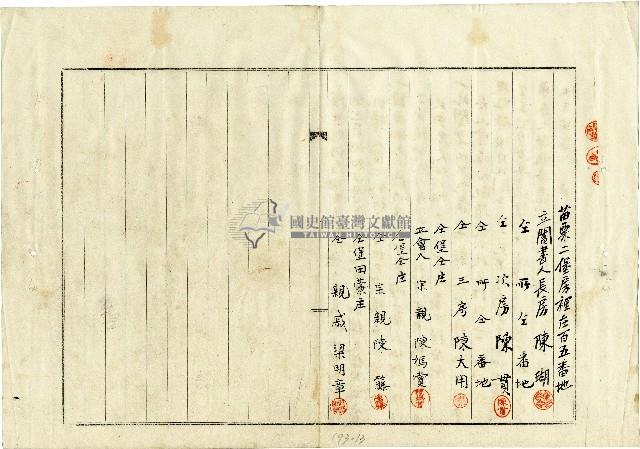 苗栗二堡房裡庄百五番地
立鬮書人長房 陳瑚
仝 所 仝 番地
仝 次房 陳貫
仝 所 仝 番地
仝 三房 陳大用
仝堡仝庄
立會人 宗親 陳媽賞
仝堡仝庄
仝 宗親 陳籐
仝堡田藔庄
仝 親戚 梁明章
國史館臺灣文獻館
TAIWAN HISTORICA
193-13